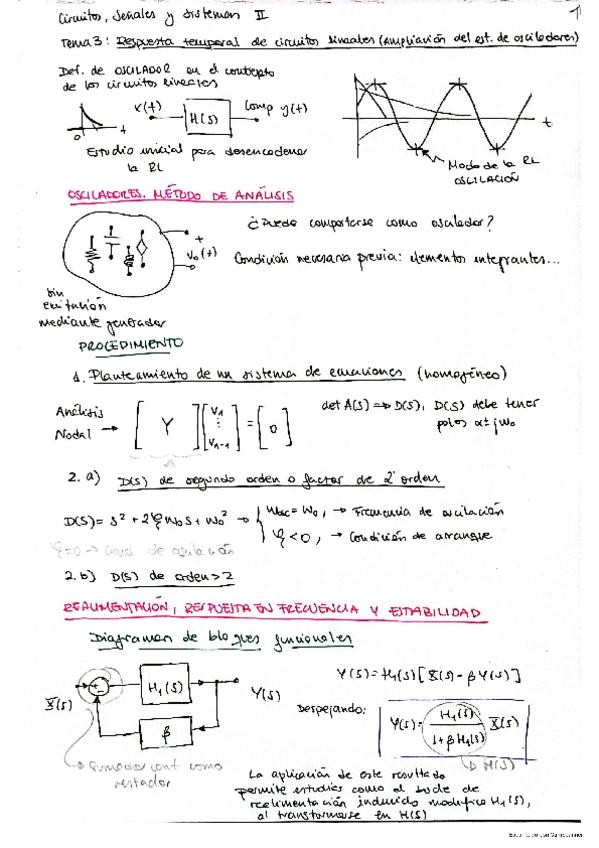 Circuitos, Señales y Sistemas II
1
Tema 3: Respuesta temporal de circuitos lineales (ampliación del est. de osciladores)
Def. de OSCILADOR en el contexto
de los circuitos lineales
x(t)
H(s)
Comp y(t)
0
t
t
Estudio inicial para desencadenar
la RL
Modo de la RL
OSCILACIÓN
OSCILADORES. MÉTODO DE ANÁLISIS
¿Puede comportarse como oscilador?
+
Vo(t)
-
Condición necesaria previa: elementos integrantes...
sin
excitación
mediante generador
PROCEDIMIENTO
1. Planteamiento de un sistema de ecuaciones (homogéneo)
Análisis
Nodal → [ Y ] [ V1 ⋮ Vn-1 ] = [ 0 ]
det A(s) => D(s), D(s) debe tener
polos α ± jωo
2. a) D(s) de segundo orden o factor de 2º orden
D(s) = s² + 2ξωos + ωo² → { ωosc = ωo, → Frecuencia de oscilación
ξ < 0, → Condición de arranque
ξ = 0 → Cond. de oscilación
2. b) D(s) de orden > 2
REALIMENTACIÓN, RESPUESTA EN FRECUENCIA Y ESTABILIDAD
Diagramas de bloques funcionales
X(s)
+
-
H1(s)
Y(s)
β
Y(s) = H1(s) [X(s) - βY(s)]
Despejando:
Y(s) = H1(s) / 1 + βH1(s) X(s)
H(s)
→ Sumador cont. como
restador
La aplicación de este resultado
permite estudiar como el bucle de
realimentación inducido modifica H1(s),
al transformarse en H(s)